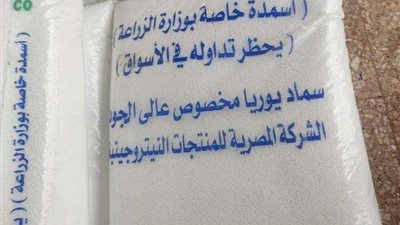 CO
( أسمدة خاصة بوزارة الزراعة )
( يحظر تداوله في الأسواق )
سماد يوريا مخصوص عالى الجود
الشركة المصرية للمنتجات النيتروجينية
( أسمدة خاصة بوزارة الزراعة ) ( ي